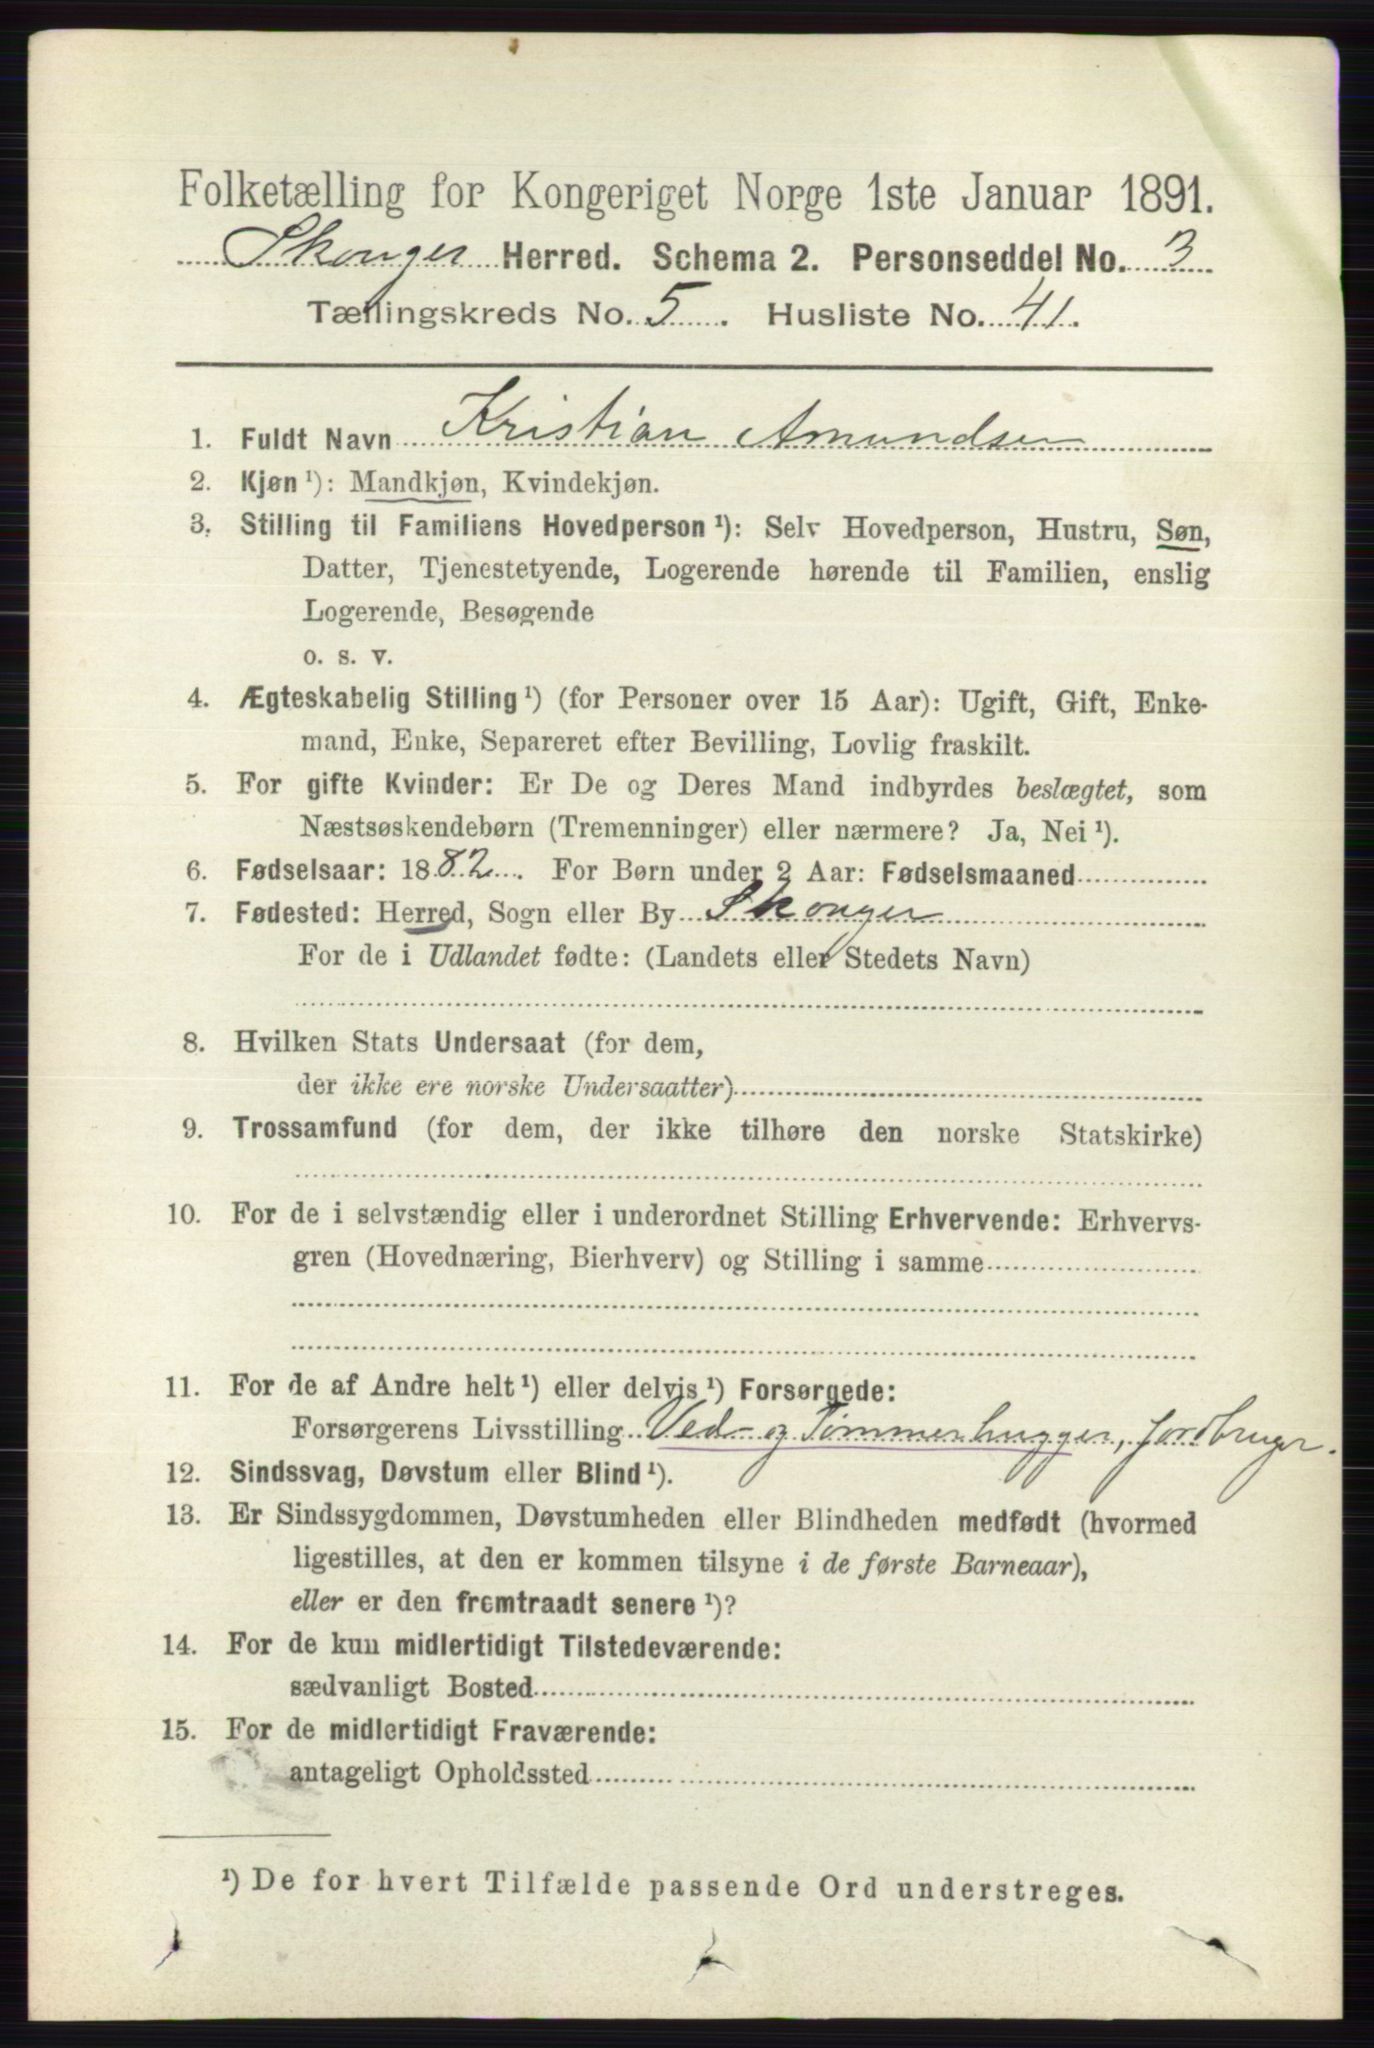 Folketælling for Kongeriget Norge 1ste Januar 1891.
Skouger Herred. Schema 2. Personseddel No. 3
Tællingskreds No. 5. Husliste No. 41.
1. Fuldt Navn Kristian Amundsen
2. Kjøn ¹): Mandkjøn, Kvindekjøn.
3. Stilling til Familiens Hovedperson ¹): Selv Hovedperson, Hustru, Søn,
Datter, Tjenestetyende, Logerende hørende til Familien, enslig
Logerende, Besøgende
o. s. v.
4. Ægteskabelig Stilling ¹) (for Personer over 15 Aar): Ugift, Gift, Enke-
mand, Enke, Separeret efter Bevilling, Lovlig fraskilt.
5. For gifte Kvinder: Er De og Deres Mand indbyrdes beslægtet, som
Næstsøskendebørn (Tremenninger) eller nærmere? Ja, Nei ¹).
6. Fødselsaar: 1882. For Børn under 2 Aar: Fødselsmaaned
7. Fødested: Herred, Sogn eller By Skouger
For de i Udlandet fødte: (Landets eller Stedets Navn)
8. Hvilken Stats Undersaat (for dem,
der ikke ere norske Undersaatter)
9. Trossamfund (for dem, der ikke tilhøre den norske Statskirke)
10. For de i selvstændig eller i underordnet Stilling Erhvervende: Erhvervs-
gren (Hovednæring, Bierhverv) og Stilling i samme
11. For de af Andre helt ¹) eller delvis ¹) Forsørgede:
Forsørgerens Livsstilling Ved- og Tømmerhugger, Jordbruger.
12. Sindssvag, Døvstum eller Blind ¹).
13. Er Sindssygdommen, Døvstumheden eller Blindheden medfødt (hvormed
ligestilles, at den er kommen tilsyne i de første Barneaar),
eller er den fremtraadt senere ¹)?
14. For de kun midlertidigt Tilstedeværende:
sædvanligt Bosted
15. For de midlertidigt Fraværende:
antageligt Opholdssted
¹) De for hvert Tilfælde passende Ord understreges.